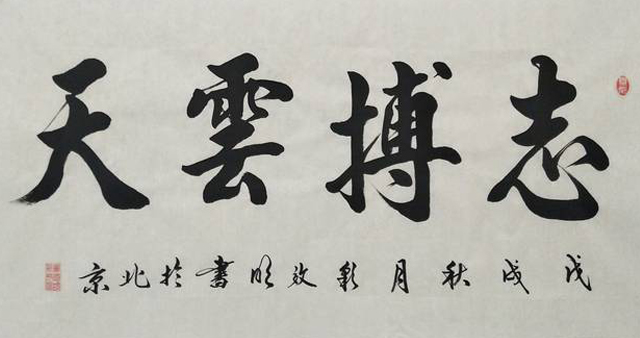 志搏雲天
戊戌秋月效明書於北京